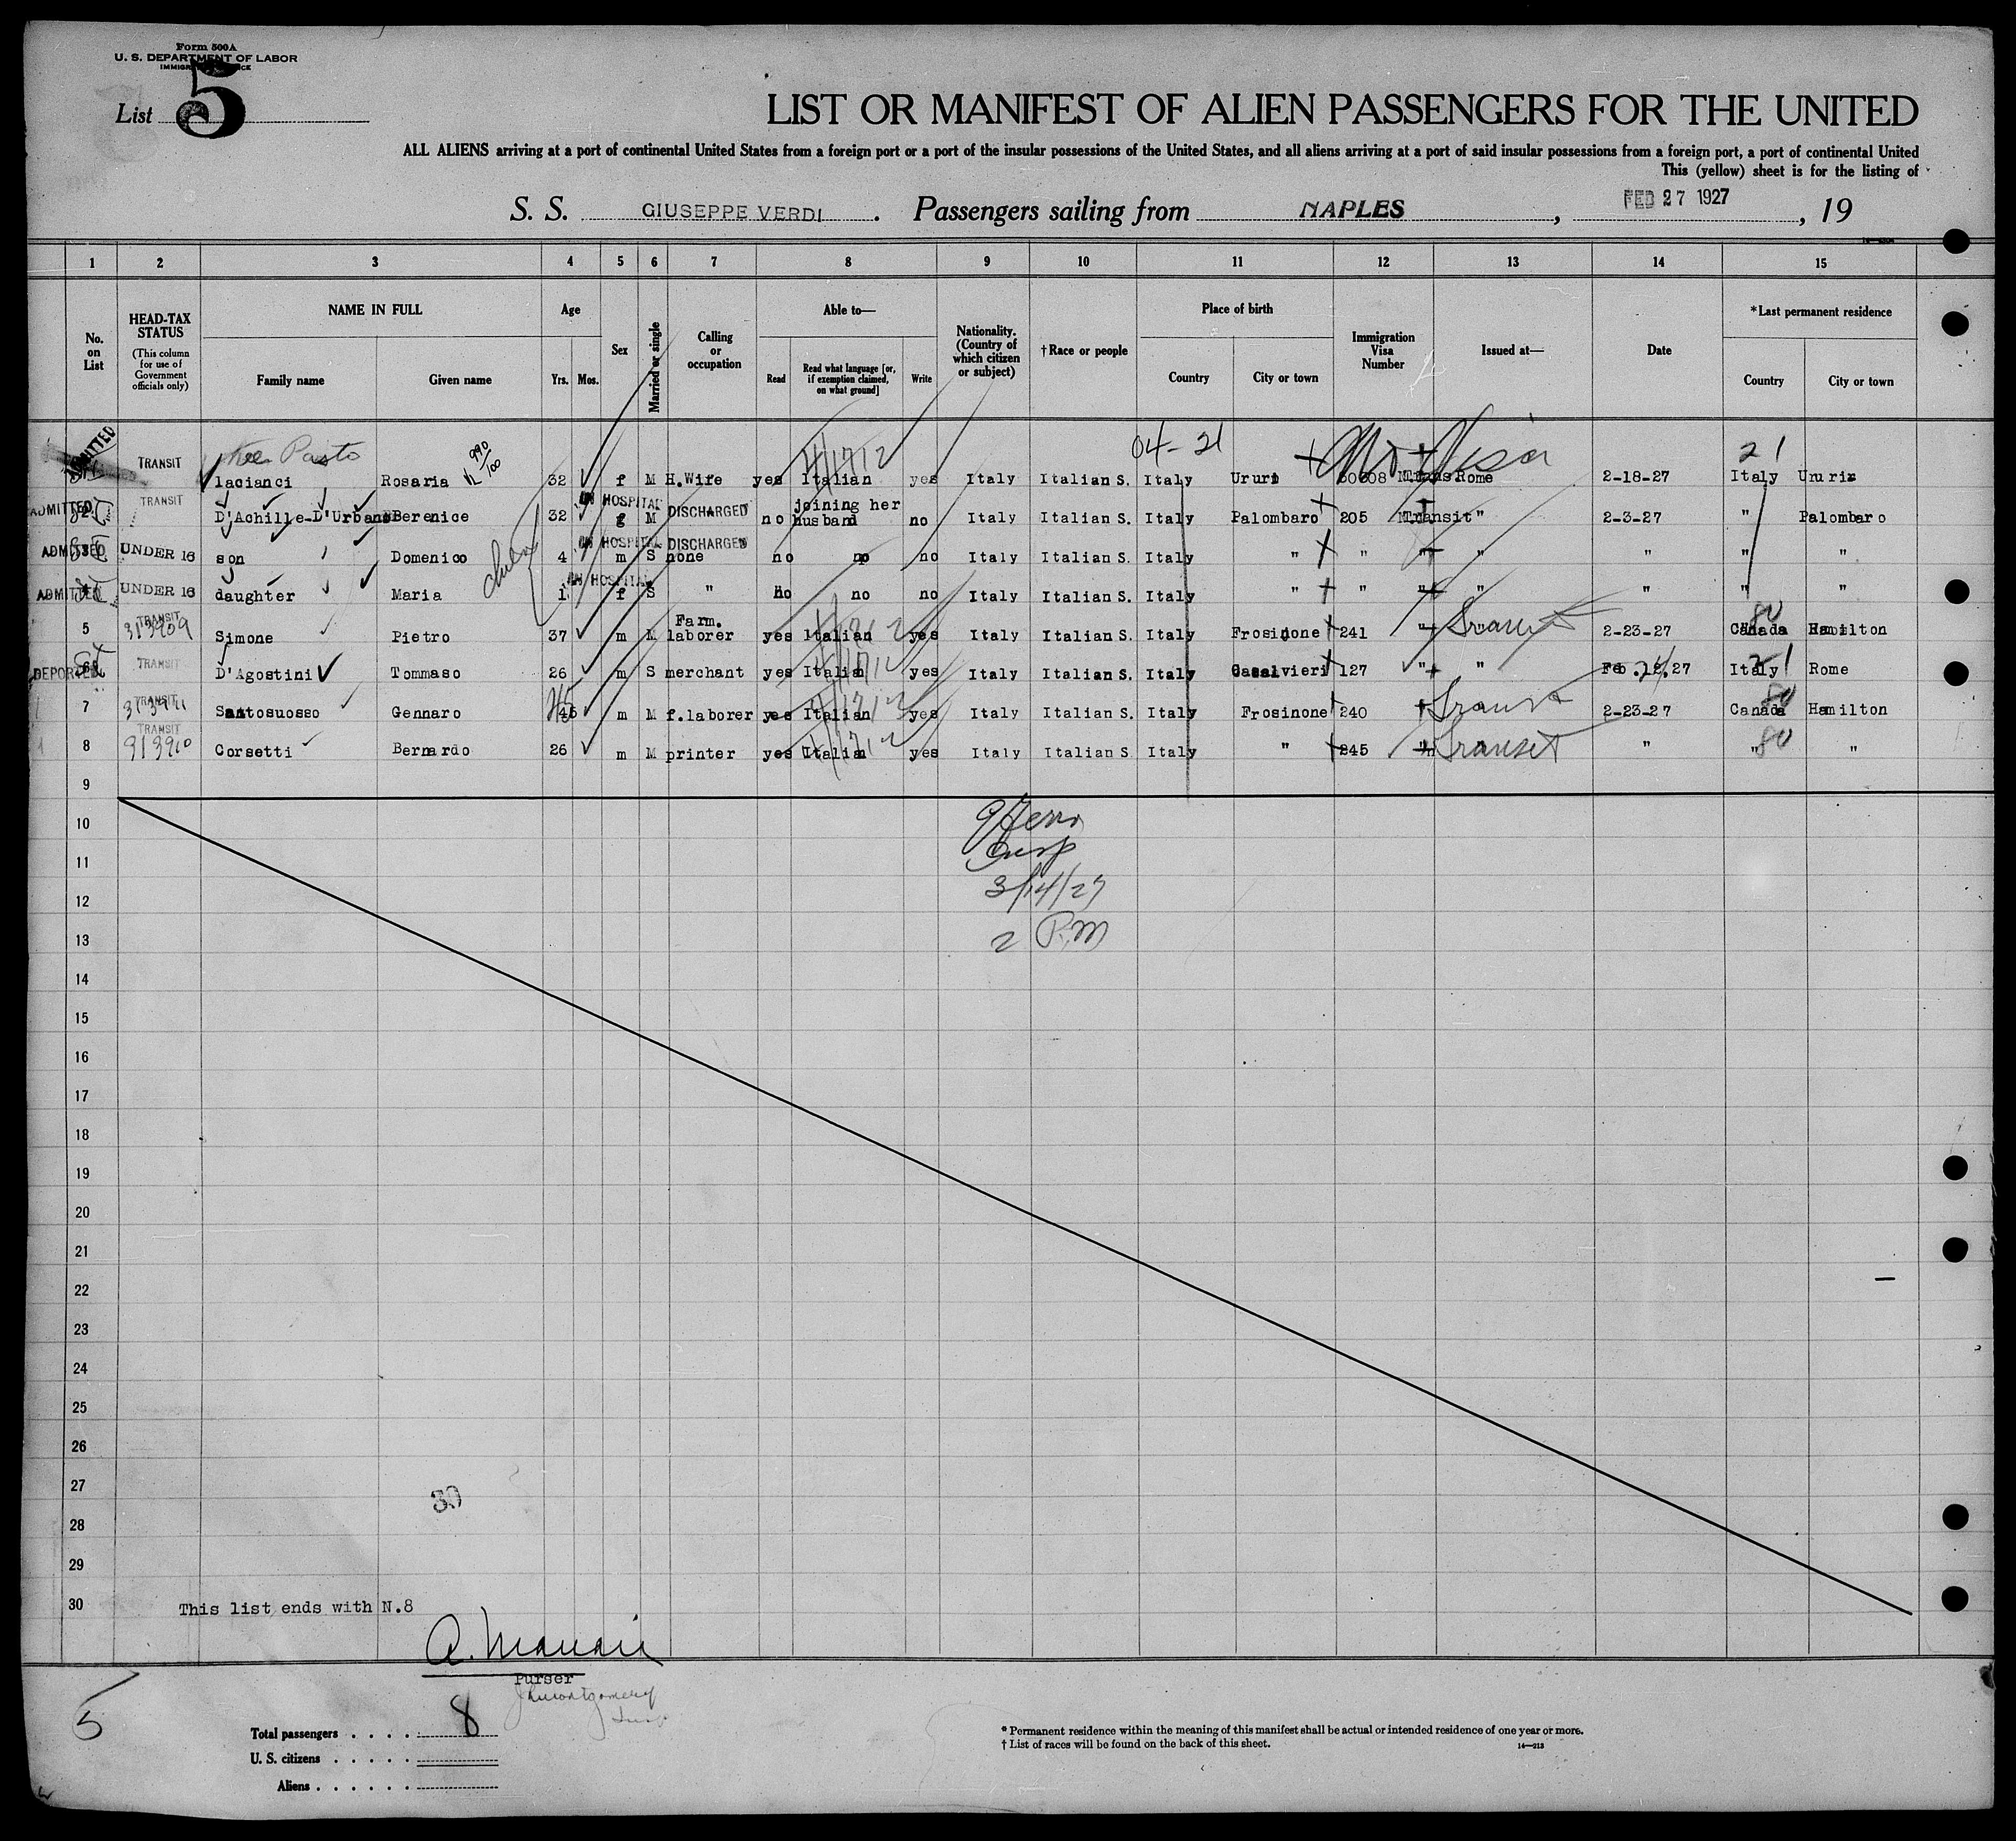 Form 500A
U. S. DEPARTMENT OF LABOR
List 5
LIST OR MANIFEST OF ALIEN PASSENGERS FOR THE UNITED
ALL ALIENS arriving at a port of continental United States from a foreign port or a port of the insular possessions of the United States, and all aliens arriving at a port of said insular possessions from a foreign port, a port of continental United
This (yellow) sheet is for the listing of
S. S. GIUSEPPE VERDI . Passengers sailing from NAPLES , FEB 27 1927 , 19
1 2 3 4 5 6 7 8 9 10 11 12 13 14 15
No. on List
HEAD-TAX STATUS
(This column for use of Government officials only)
NAME IN FULL
Family name Given name
Age
Yrs. Mos.
Sex
Married or single
Calling or occupation
Able to—
Read
Read what language [or, if exemption claimed, on what ground]
Write
Nationality. (Country of which citizen or subject)
†Race or people
Place of birth
Country City or town
Immigration Visa Number
Issued at—
Date
*Last permanent residence
Country City or town
ADMITTED TRANSIT Pasto 990/100 4/1712 04-21 No Visa 21
lacianci Rosaria 32 f M H.Wife yes Italian yes Italy Italian S. Italy Ururi Rome 2-18-27 Italy Ururi
ADMITTED TRANSIT IN HOSPITAL DISCHARGED joining her
D'Achille-D'Urbano Berenice 32 M no husband no Italy Italian S. Italy Palombaro 205 Transit " 2-3-27 " Palombaro
ADMITTED UNDER 16 IN HOSPITAL DISCHARGED
son Domenico 4 m S none no no no Italy Italian S. Italy " " " " " " "
ADMITTED UNDER 16 IN HOSPITAL
daughter Maria 1 f S " no no no Italy Italian S. Italy " " " " " " "
5 TRANSIT 313909 Farm. Transit 80
Simone Pietro 37 m M laborer yes Italian yes Italy Italian S. Italy Frosinone 241 " " 2-23-27 Canada Hamilton
DEPORTED 6 TRANSIT D'Agostini Tommaso 26 m S merchant yes Italian yes Italy Italian S. Italy Casalvieri 127 " " Italy Rome
7 TRANSIT Santosuosso Gennaro m M f.laborer yes Italian yes Italy Italian S. Italy Frosinone 240 Transit 2-23-27 Canada Hamilton
8 TRANSIT 313910 Corsetti Bernardo 26 m M printer yes Italian yes Italy Italian S. Italy " 245 Transit " " 80 "
9
10
11 Insp
12 3/14/27
13 2 P.M
14
15
16
17
18
19
20
21
22
23
24
25
26
27
30
28
29
30
This list ends with N.8
Purser
5
Total passengers . . . . 8
U. S. citizens . . . . .
Aliens . . . . . .
* Permanent residence within the meaning of this manifest shall be actual or intended residence of one year or more.
† List of races will be found on the back of this sheet.
14—213